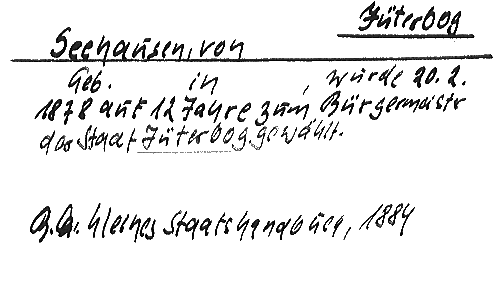 Jüterbog
Seehausen, von
Geb. in , wurde 20.2.
1878 auf 12 Jahre zum Bürgermeistr
der Stadt Jüterbog gewählt.
Kleines Staatshandbuch, 1884